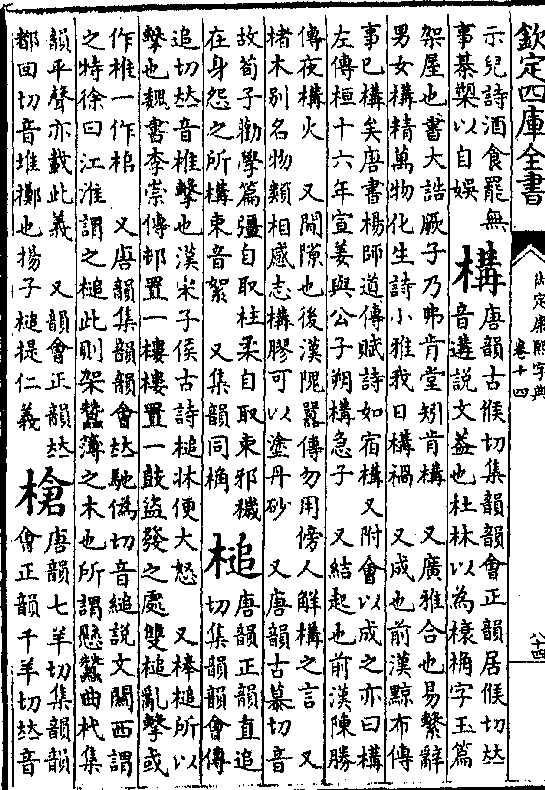 欽定四庫全書
御定康熙字典
卷十四
八十四
示兒詩酒食罷無
事棊槊以自娛
構
唐韻古候切集韻韻會正韻居候切𠀤
音遘說文葢也杜林以為椽桷字玉篇
架屋也書大誥厥子乃弗肯堂矧肯構 又廣雅合也易繫辭
男女構精萬物化生詩小雅我日構禍 又成也前漢黥布傳
事已構矣唐書楊師道傳賦詩如宿構又附會以成之亦曰構
左傳桓十六年宣姜與公子朔構急子 又結起也前漢陳勝
傳夜構火 又閒隙也後漢隗囂傳勿用傍人解構之言 又
楮木别名物類相感志構膠可以塗丹砂 又唐韻古慕切音
故荀子勸學篇彊自取柱柔自取束邪穢
在身怨之所構束音絮 又集韻同桷
槌
唐韻正韻直追
切集韻韻會傳
追切𠀤音椎擊也漢宋子侯古詩槌牀便大怒 又棒槌所以
擊也魏書李崇傳邨置一樓樓置一鼓盜發之處雙槌亂擊或
作椎一作㭔 又唐韻集韻韻會𠀤馳偽切音縋說文關西謂
之特徐曰江淮謂之槌此則架蠶薄之木也所謂懸蠶曲杙集
韻平聲亦載此義 又韻會正韻𠀤
都回切音堆擲也揚子槌提仁義
槍
唐韻七羊切集韻韻
會正韻千羊切𠀤音